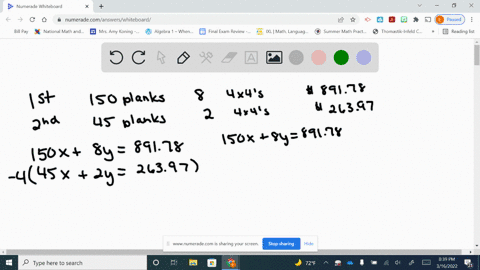 Numerade Whiteboard
numerade.com/answers/whiteboard/
Paused
Bill Pay
National Math and...
Mrs. Amy Koning -...
Algebra 1 - When...
Final Exam Review -...
IXL | Math, Languag...
Summer Math Pract...
Reading list
1st 150 planks 8 4x4's $891.78
2nd 45 planks 2 4x4's $263.97
150x + 8y = 891.78
150x + 8y = 891.78
-4(45x + 2y = 263.97)
www.numerade.com is sharing your screen.
Stop sharing
Hide
Type here to search
72°F
8:39 PM